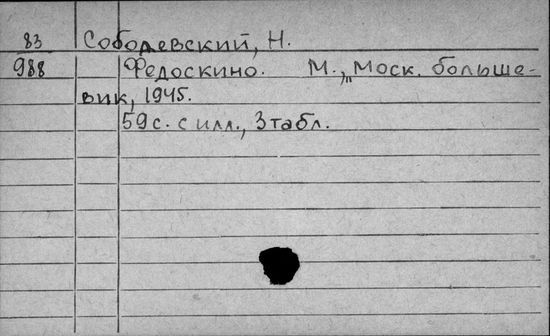 83 Соболевский, Н.
988 Федоскино. М., „Моск. больше-
вик, 1945.
59 с. с илл., 3 табл.